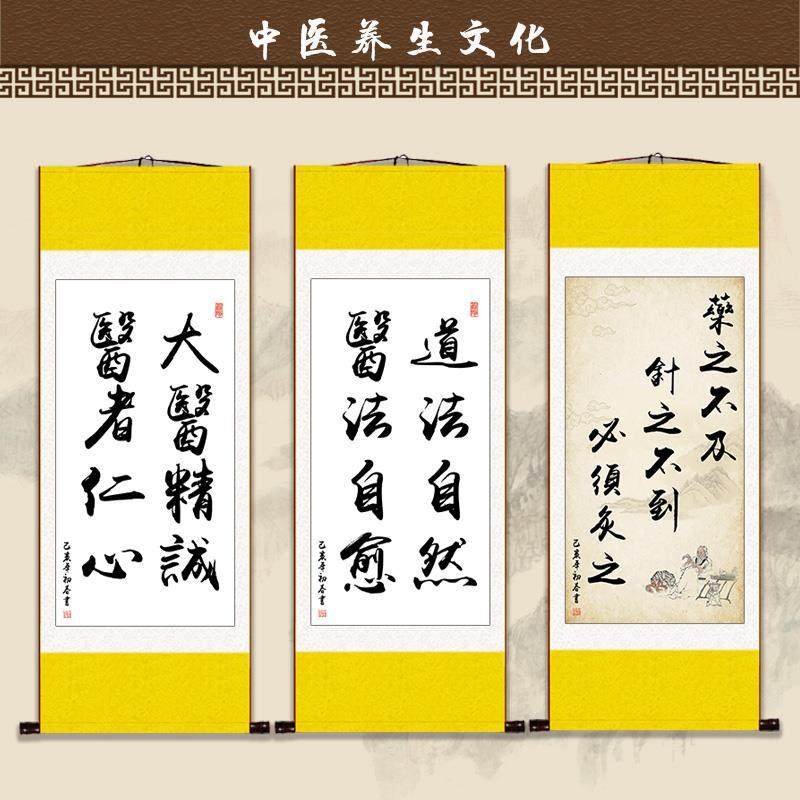 中医养生文化
大醫精誠
醫者仁心
己亥年初春書
道法自然
醫法自愈
己亥年初春書
藥之不及
針之不到
必須灸之
己亥年初春書